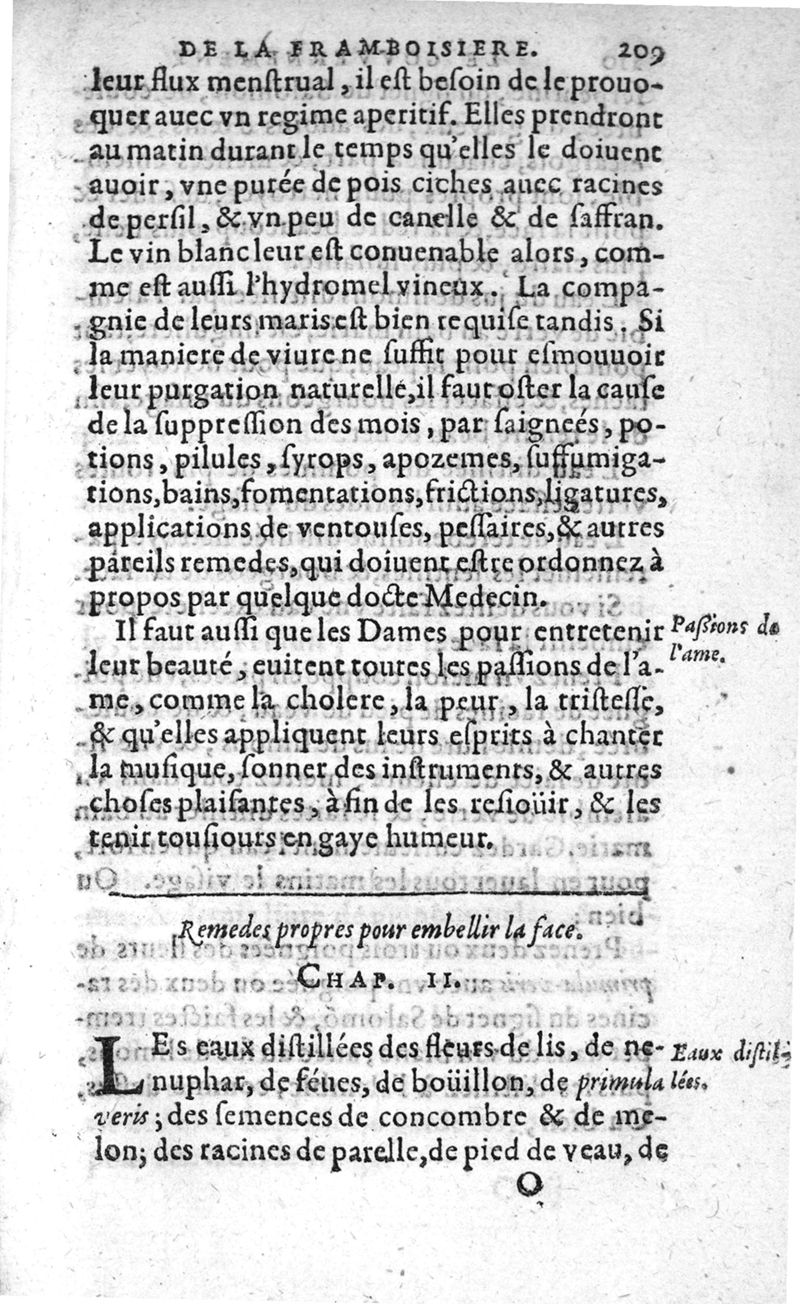 DE LA FRAMBOISIERE. 209
leur flux menſtrual, il eſt beſoin de le prouo-
quer auec vn regime aperitif. Elles prendront
au matin durant le temps qu'elles le doiuent
auoir, vne purée de pois ciches auec racines
de perſil, & vn peu de canelle & de ſaffran.
Le vin blanc leur eſt conuenable alors, com-
me eſt auſſi l'hydromel vineux. La compa-
gnie de leurs maris eſt bien requiſe tandis. Si
la maniere de viure ne ſuffit pour eſmouuoir
leur purgation naturelle, il faut oſter la cauſe
de la ſuppreſſion des mois, par ſaigneés, po-
tions, pilules, ſyrops, apozemes, ſuffumiga-
tions, bains, fomentations, frictions, ligatures,
applications de ventouſes, peſſaires, & autres
pareils remedes, qui doiuent eſtre ordonnez à
propos par quelque docte Medecin.
Il faut auſſi que les Dames pour entretenir
Paſsions de
l'ame.
leur beauté, euitent toutes les paſſions de l'a-
me, comme la cholere, la peur, la triſteſſe,
& qu'elles appliquent leurs eſprits à chanter
la muſique, ſonner des inſtruments, & autres
choſes plaiſantes, à fin de les reſioüir, & les
tenir touſiours en gaye humeur.
Remedes propres pour embellir la face.
CHAP. II.
LEs eaux diſtillées des fleurs de lis, de ne-
Eaux diſtil-
lées.
nuphar, de féues, de boüillon, de primula
veris; des ſemences de concombre & de me-
lon; des racines de parelle, de pied de veau, de
O